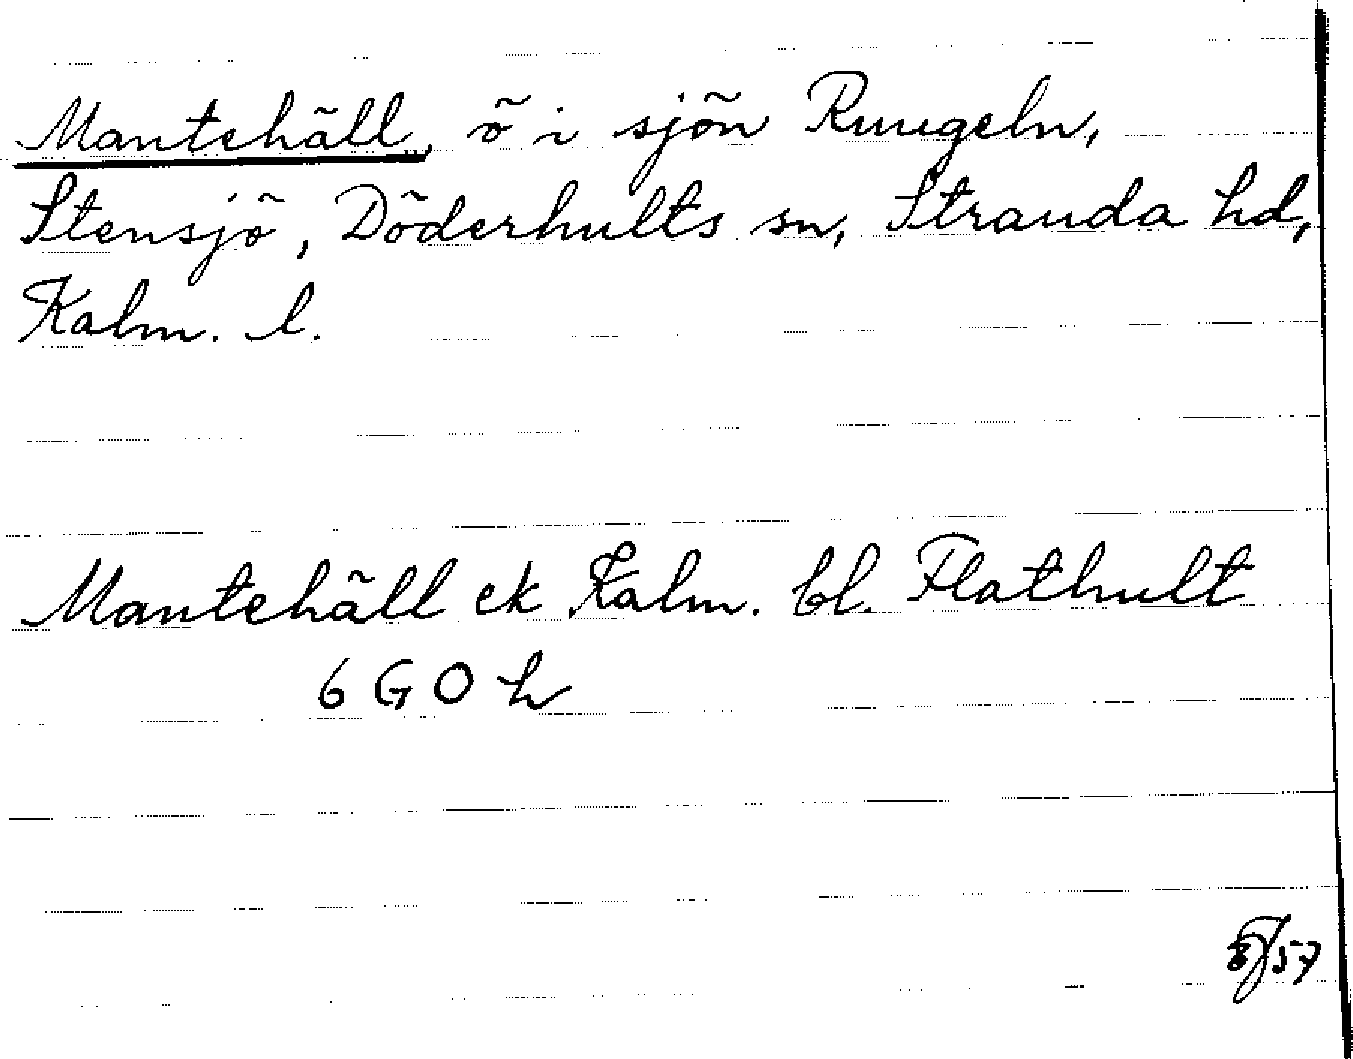 Mantehäll, ö i sjön Ruugeln,
Stensjö, Döderhults sn, Stranda hd,
Kalm. l.
Mantehäll ek Kalm. bl. Flathult
6 G O h
57